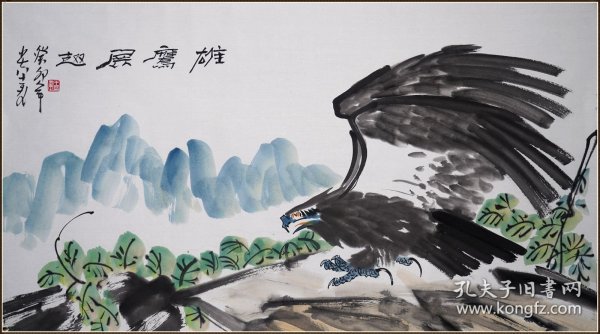 雄鹰展翅
癸卯年
孔夫子旧书网
www.kongfz.com